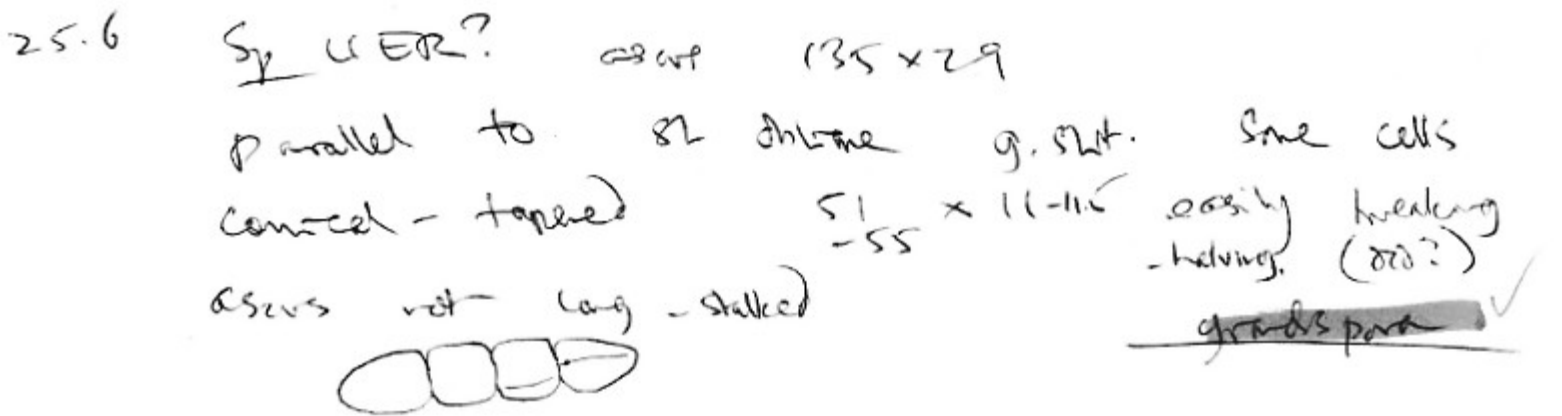 25.6 Sp ER? ascus 135 x 29
parallel to g. slit. Some cells
conical - tapered 51 -55 x 11-11.5 easily breaking
- halving.
ascus not long - stalked
grandispora ✓